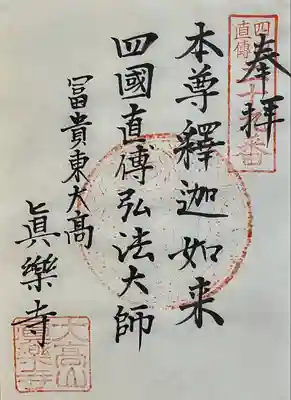 奉拝
四国
直傳
本尊釋迦如来
四國直傳弘法大師
冨貴東大高
眞樂寺
大高山
眞樂寺